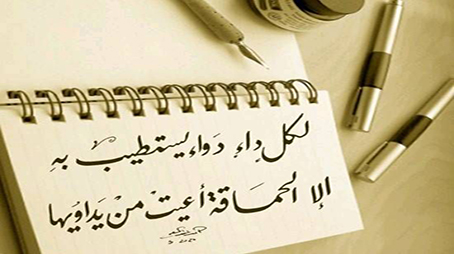 لكل داءٍ دَواء يستطيب بهِ
إلا الحماقة أعيتْ منْ يداويها